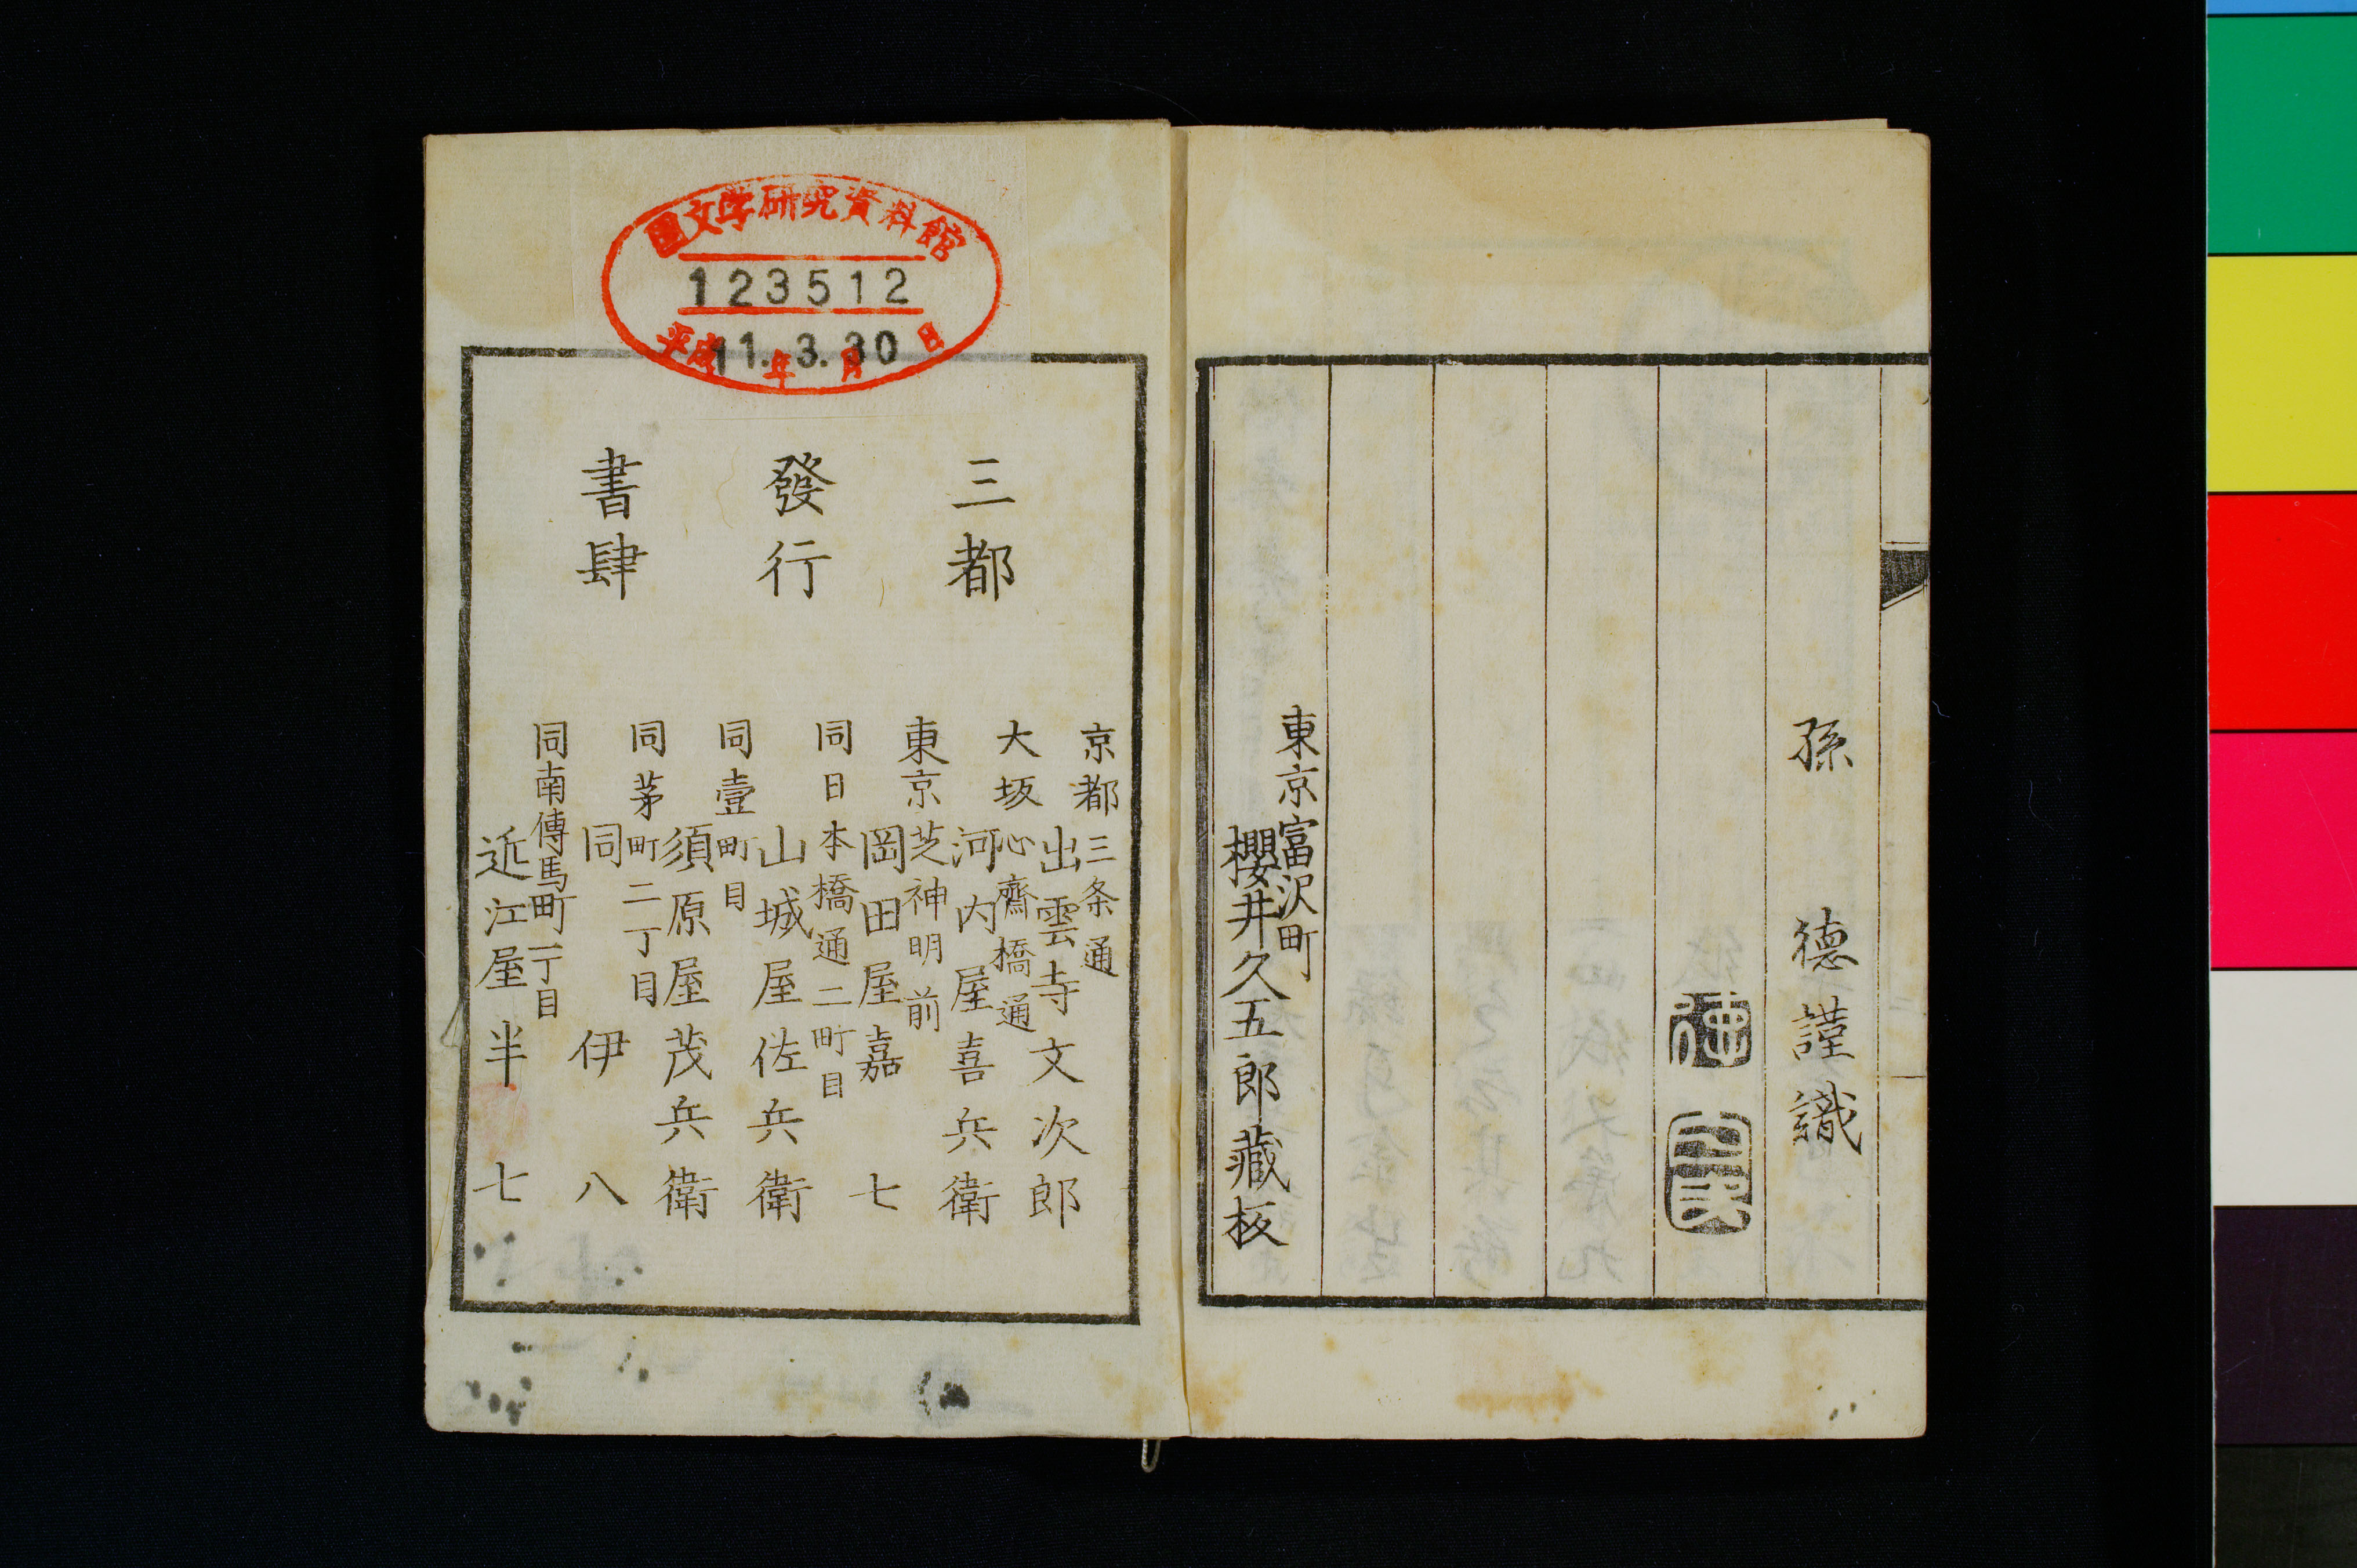 孫　徳謹識
東京富沢町
櫻井久五郎藏板
國文学研究資料館
123512
平成11年3.月30日
三都
發行
書肆
京都三条通
出雲寺文次郎
大坂心齋橋通
河内屋喜兵衛
東京芝神明前
岡田屋嘉七
同日本橋通二町目
山城屋佐兵衛
同壹町目
須原屋茂兵衛
同茅町二丁目
同　伊八
同南傳馬町一丁目
近江屋半七